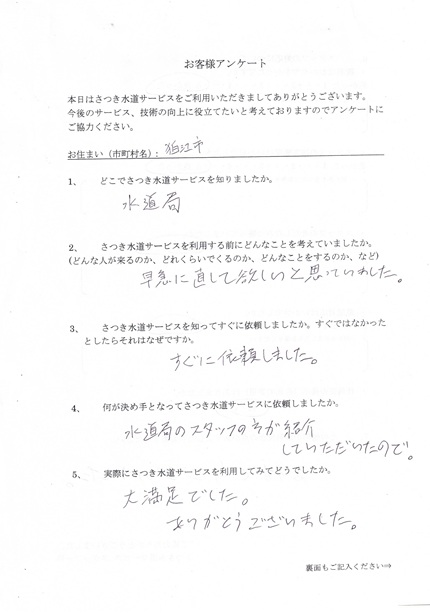 お客様アンケート
本日はさつき水道サービスをご利用いただきましてありがとうございます。
今後のサービス、技術の向上に役立てたいと考えておりますのでアンケートに
ご協力ください。
お住まい（市町村名）：狛江市
1、 どこでさつき水道サービスを知りましたか。
水道局
2、 さつき水道サービスを利用する前にどんなことを考えていましたか。
(どんな人が来るのか、どれくらいでくるのか、どんなことをするのか、など)
早急に直して欲しいと思っていました。
3、 さつき水道サービスを知ってすぐに依頼しましたか。すぐではなかった
としたらそれはなぜですか。
すぐに依頼しました。
4、 何が決め手となってさつき水道サービスに依頼しましたか。
水道局のスタッフの方が紹介
していただいたので。
5、 実際にさつき水道サービスを利用してみてどうでしたか。
大満足でした。
ありがとうございました。
裏面もご記入ください⇒